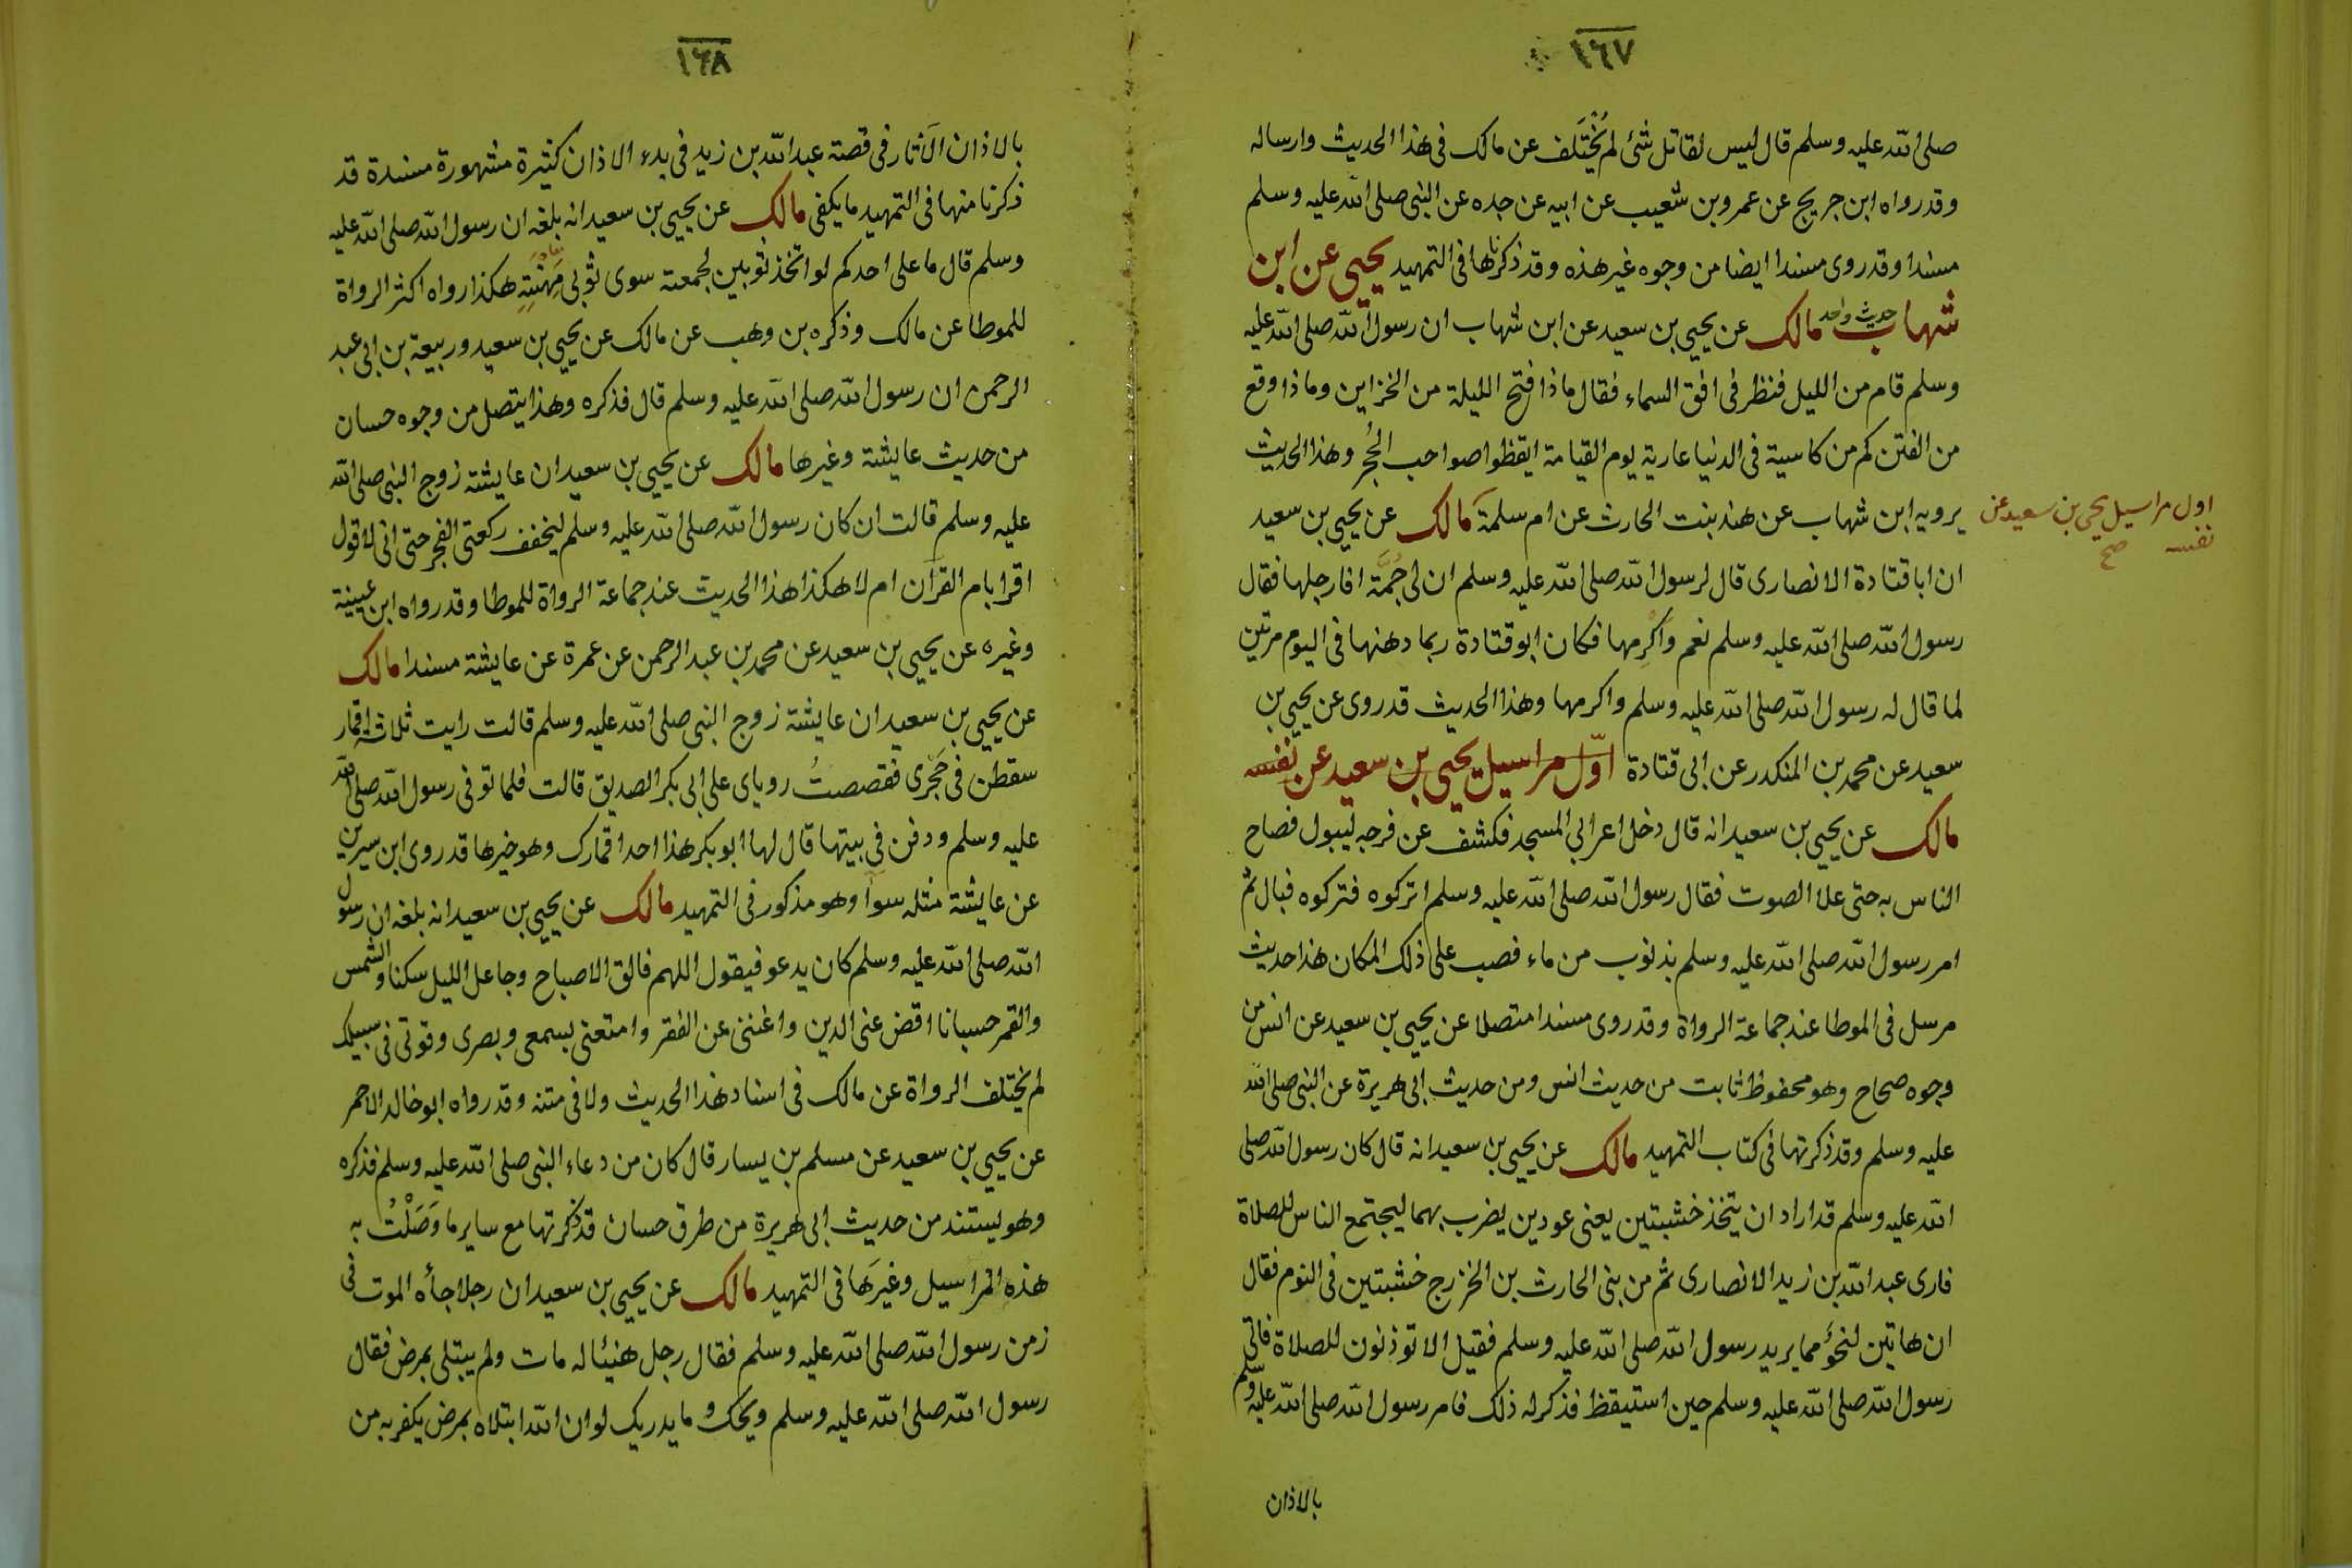 ١٦٧
صلى الله عليه وسلم قال ليس لقاتل شئ لم يُخْتَلف عن مالك في هذا الحديث وارساله
وقد رواه ابن جريج عن عمرو بن شعيب عن ابيه عن جده عن النبي صلى الله عليه وسلم
مسندا وقد روى مسندا ايضا من وجوه غير هذه وقد ذكرناها في التمهيد يحيى عن ابن
شهاب حديث واحد مالك عن يحيى بن سعيد عن ابن شهاب ان رسول الله صلى الله عليه
وسلم قام من الليل فنظر في افق السماء فقال ماذا فتح الليلة من الخزاين وماذا وقع
من الفتن كم من كاسية في الدنيا عارية يوم القيامة ايقظوا صواحب الحُجر وهذا الحديث
يرويه ابن شهاب عن هند بنت الحارث عن ام سلمة مالك عن يحيى بن سعيد
اول مراسيل يحيى بن سعيد عن
نفسه صح
ان ابا قتادة الانصارى قال لرسول الله صلى الله عليه وسلم ان لى جُمَّة افارجلها فقال
رسول الله صلى الله عليه وسلم نعم واكرِمها فكان ابو قتادة ربما دهنها في اليوم مرتين
لما قال له رسول الله صلى الله عليه وسلم واكرمها وهذا الحديث قد روى عن يحيى بن
سعيد عن محمد بن المنكدر عن ابى قتادة اوّل مراسيل يحيى بن سعيد عن نفسه
مالك عن يحيى بن سعيد انه قال دخل اعرابي المسجد فكشف عن فرجه ليبول فصاح
الناس به حتى علا الصوت فقال رسول الله صلى الله عليه وسلم اتركوه فتركوه فبال ثم
امر رسول الله صلى الله عليه وسلم بذنوب من ماء فصب على ذلك المكان هذا حديث
مرسل في الموطا عند جماعة الرواة وقد روى مسندا متصلا عن يحيى بن سعيد عن انس من
وجوه صحاح وهو محفوظ ثابت من حديث انس ومن حديث ابى هريرة عن النبي صلى الله
عليه وسلم وقد ذكرتها في كتاب التمهيد مالك عن يحيى بن سعيد انه قال كان رسول الله صلى
الله عليه وسلم قد اراد ان يتخذ خشبتين يعنى عودين يضرب بهما ليجتمع الناس للصلاة
فارى عبد الله بن زيد الانصارى ثم من بنى الحارث بن الخزرج خشبتين في النوم فقال
ان هاتين لنحوٌ مما يريد رسول الله صلى الله عليه وسلم فقيل الا توذنون للصلاة فاتى
رسول الله صلى الله عليه وسلم حين استيقظ فذكر له ذلك فامر رسول الله صلى الله عليه وسلم
بالاذان
١٦٨
بالاذان الآثار في قصة عبد الله بن زيد في بدء الاذان كثيرة مشهورة مسندة قد
ذكرنا منها في التمهيد ما يكفى مالك عن يحيى بن سعيد انه بلغه ان رسول الله صلى الله عليه
وسلم قال ما على احدكم لو اتخذ ثوبين لجمعته سوى ثوبى مهنته هكذا رواه اكثر الرواة
للموطا عن مالك وذكره بن وهب عن مالك عن يحيى بن سعيد وربيعة بن ابى عبد
الرحمن ان رسول الله صلى الله عليه وسلم قال فذكره وهذا يتصل من وجوه حسان
من حديث عايشة وغيرها مالك عن يحيى بن سعيد ان عايشة زوج النبي صلى الله
عليه وسلم قالت ان كان رسول الله صلى الله عليه وسلم ليخفف ركعتى الفجر حتى انى لاقول
اقرا بام القرآن ام لا هكذا هذا الحديث عند جماعة الرواة للموطا وقد رواه ابن عيينة
وغيره عن يحيى بن سعيد عن محمد بن عبد الرحمن عن عمرة عن عايشة مسندا مالك
عن يحيى بن سعيد ان عايشة زوج النبي صلى الله عليه وسلم قالت رايت ثلاثة اقمار
سقطن في حَجْرى فقصصتُ روياى على ابى بكر الصديق قالت فلما توفى رسول الله صلى الله
عليه وسلم ودفن في بيتها قال لها ابو بكر هذا احد اقمارك وهو خيرها قد روى ابن سيرين
عن عايشة مثله سوآ وهو مذكور في التمهيد مالك عن يحيى بن سعيد انه بلغه ان رسول
الله صلى الله عليه وسلم كان يدعو فيقول اللهم فالق الاصباح وجاعل الليل سكنا والشمس
والقمر حسبانا اقض عنى الدين واغننى عن الفقر وامتعنى بسمعى وبصرى وقوتى في سبيلك
لم يختلف الرواة عن مالك في اسناد هذا الحديث ولا في متنه وقد رواه ابو خالد الاحمر
عن يحيى بن سعيد عن مسلم بن يسار قال كان من دعاء النبي صلى الله عليه وسلم فذكره
وهو يستند من حديث ابى هريرة من طرق حسان قد ذكرتها مع ساير ما وَصَلْتُ به
هذه المراسيل وغيرَها في التمهيد مالك عن يحيى بن سعيد ان رجلا جأه الموت في
زمن رسول الله صلى الله عليه وسلم فقال رجل هنيئا له مات ولم يبتلى بمرض فقال
رسول الله صلى الله عليه وسلم ويحك وما يدريك لو ان الله ابتلاه بمرض يكفر به من